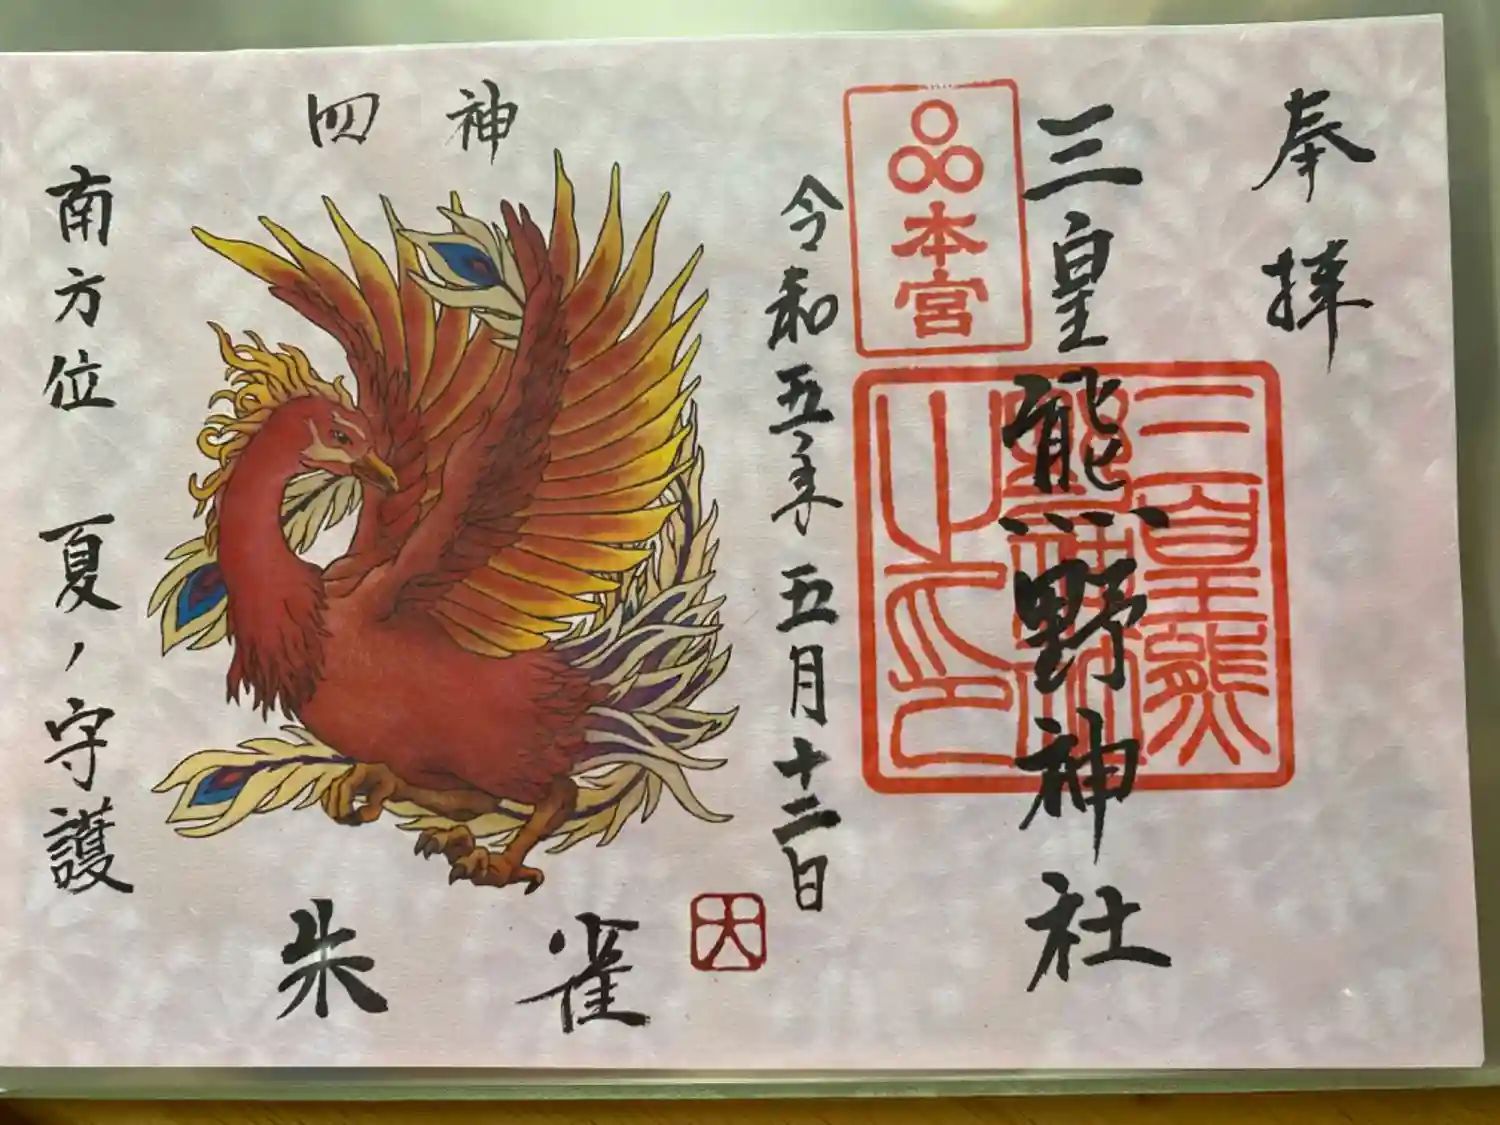 奉拝
三皇熊野神社
本宮
三皇熊
野神社
之印
令和五年五月十二日
四神
朱雀
南方位 夏ノ守護